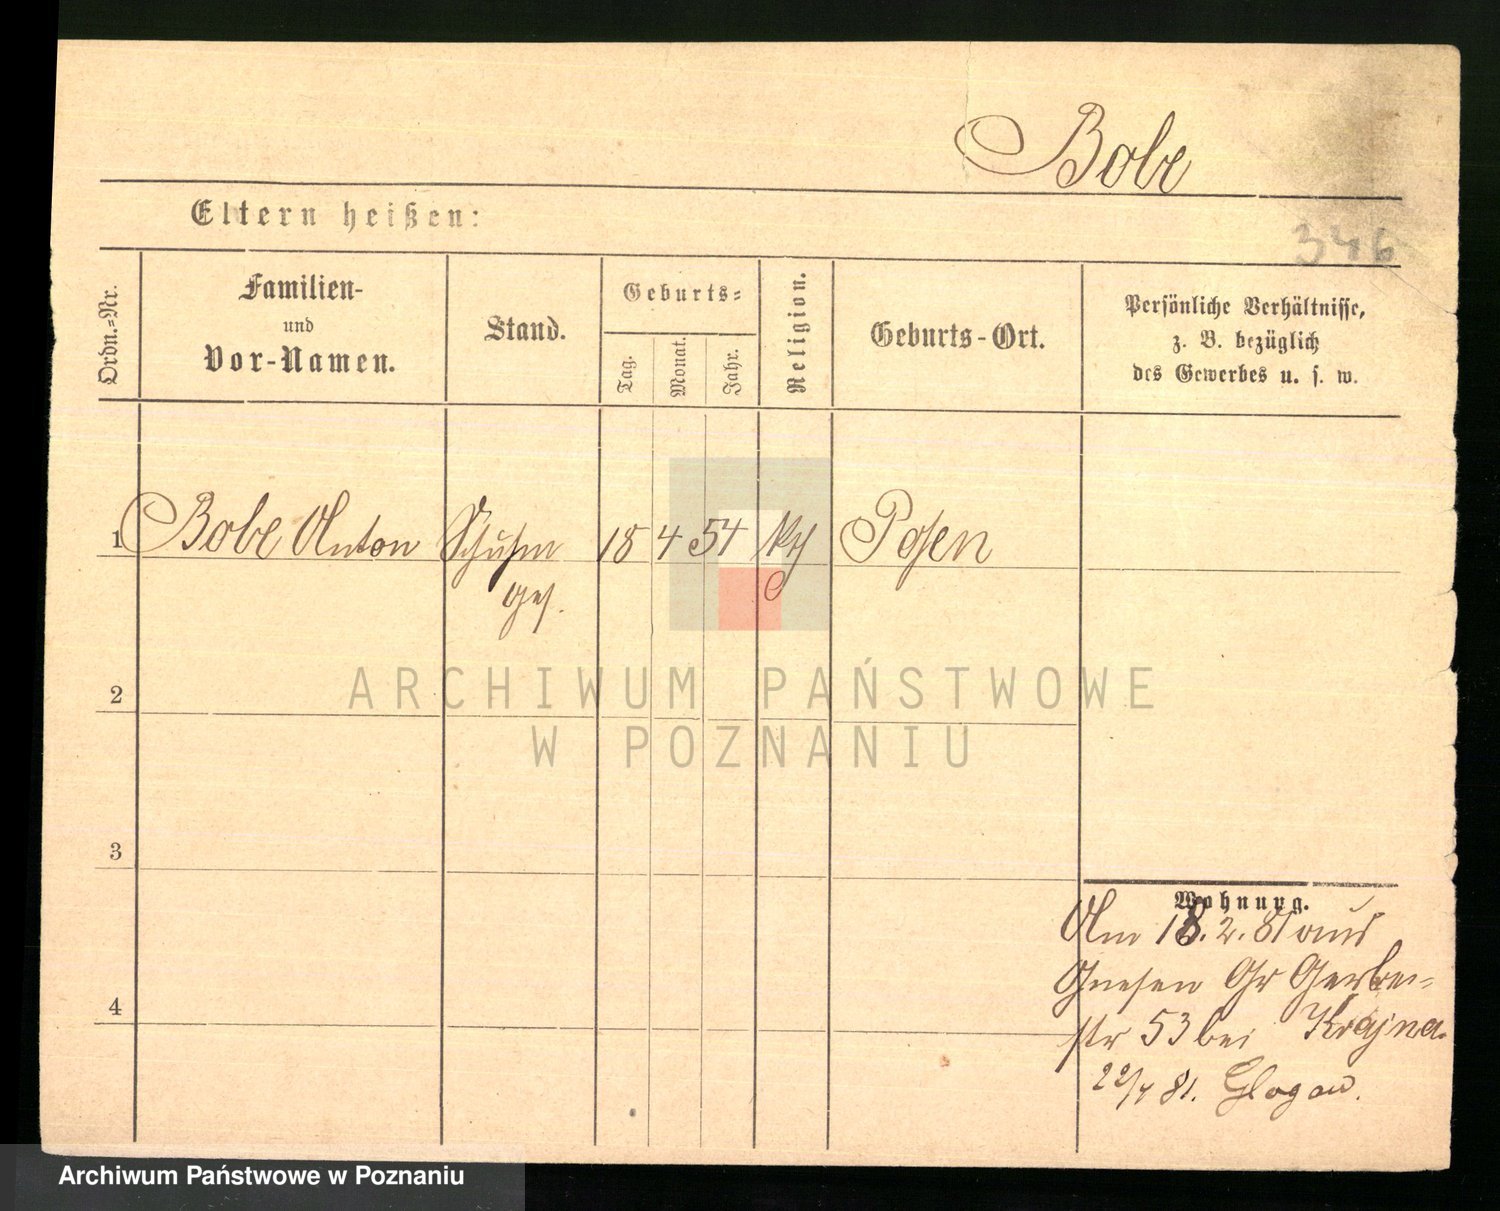 Bobe
Eltern heißen:
346
Ordn.-Nr.
Familien-
und
Vor-Namen.
Stand.
Geburts-
Tag.
Monat.
Jahr.
Religion.
Geburts-Ort.
Persönliche Verhältnisse,
z. B. bezüglich
des Gewerbes u. s. w.
1 Bobe Anton Schuhm 18 4 54 Posen
ges.
2
ARCHIWUM PAŃSTWOWE
W POZNANIU
3
Wohnung.
Am 18. 2. 81 aus
Gnesen Gr Gerber-
str 53 bei Krajna.
4
22/4 81. Glogau.
Archiwum Państwowe w Poznaniu